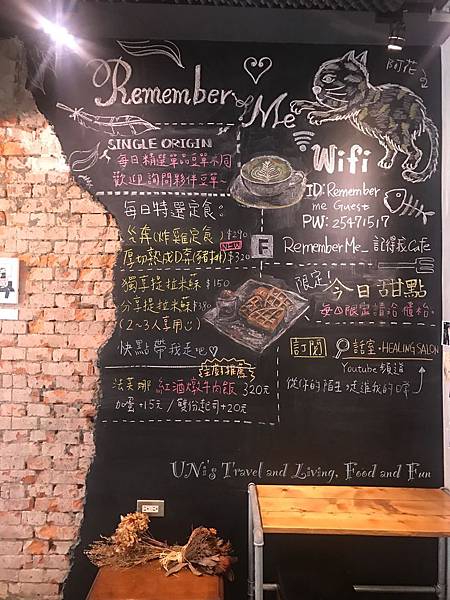 Remember Me
阿花
SINGLE ORIGIN
每日精選單品豆單不同
歡迎詢問夥伴豆單
Wifi
ID: Remember
me Guest
PW: 25471517
每日特選定食。
炸雞定食) $290
NEW
厚切熟成 (豬排) $320
F
Remember Me_ 記得我 Cafe
獨享提拉米蘇 $150
分享提拉米蘇 $380
(2~3人享用心)
快點帶我走吧♡
限定!
今日甜點
每日限定請洽櫃枱。
訂閱 話室・HEALING SALON
Youtube 頻道
從你的陌生,走進我的日常
主廚推薦
法芙娜 紅酒燉牛肉飯 320元
加蛋+15元 / 雙份起司+20元
UNi's Travel and Living, Food and Fun